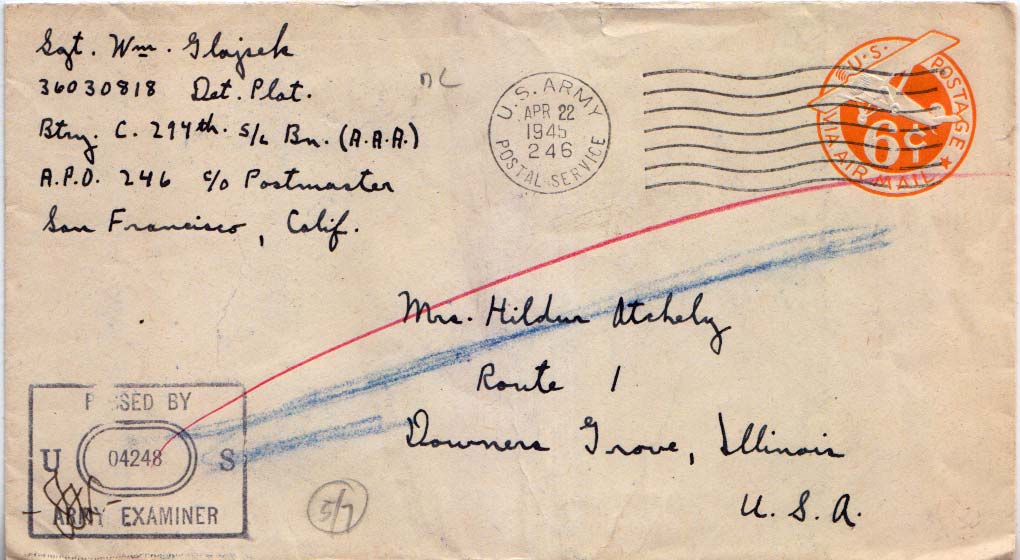 Sgt. Wm. Glajsek
36030818 Det. Plat.
Btry. C. 294th. S/L Bn. (A.A.A.)
A.P.O. 246 c/o Postmaster
San Francisco, Calif.
U.S. ARMY
APR 22
1945
246
POSTAL SERVICE
U.S. POSTAGE
6¢
VIA AIR MAIL
Mrs. Hildur Atshely
Route 1
Downers Grove, Illinois
U. S. A.
P SSED BY
U 04248 S
ARMY EXAMINER
5/7